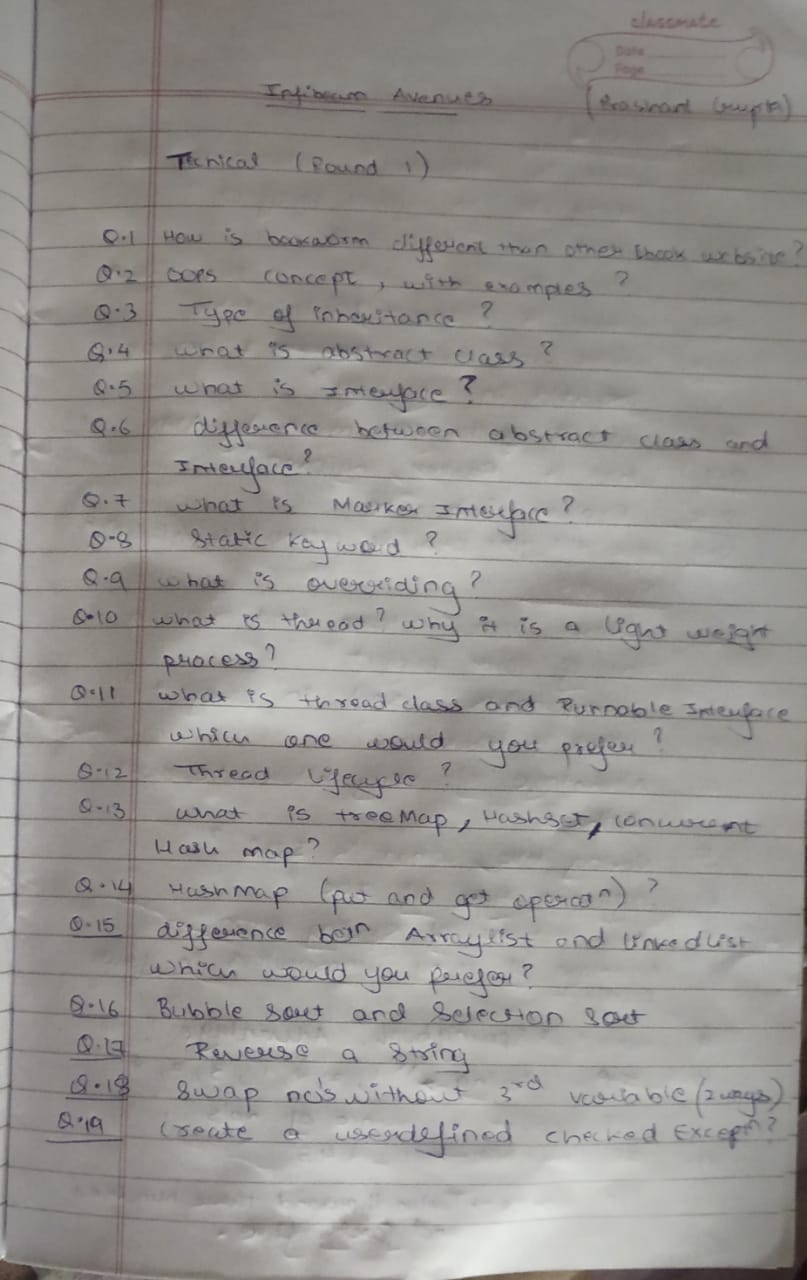 classmate
Date
Page
Infibeam Avenues
(Prashant Gupta)
Tecnical (Round 1)
Q.1 How is bookworm different than other Ebook website?
Q.2 OOPS concept, with examples ?
Q.3 Type of inheritance ?
Q.4 what is abstract class ?
Q.5 what is Interface ?
Q.6 difference between abstract class and
Interface?
Q.7 what is Marker Interface ?
Q.8 Static keyword ?
Q.9 what is overriding ?
Q.10 what is thread? why it is a light weight
process?
Q.11 what is thread class and Runnable Interface
which one would you prefer ?
Q.12 Thread Lifecycle ?
Q.13 what is treeMap, Hashset, concurrent
Hash map?
Q.14 HashMap (put and get operaᵒⁿ) ?
Q.15 difference betⁿ Arraylist and linkedlist
which would you prefer?
Q.16 Bubble sort and Selection sort
Q.17 Reverse a String
Q.18 Swap no's without 3rd variable (2 ways)
Q.19 Create a userdefined checked Excepⁿ ?